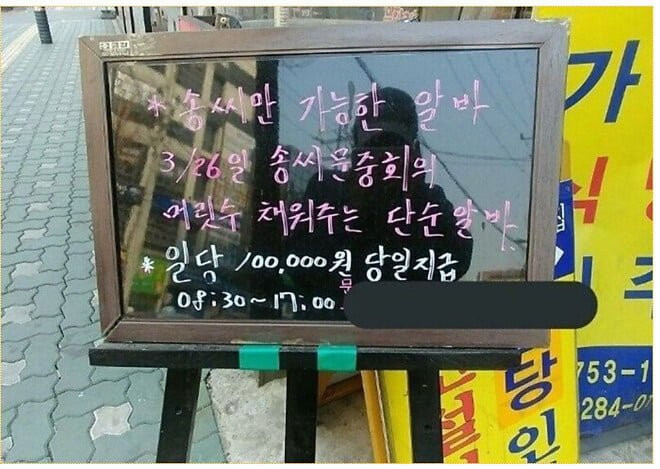 * 송씨만 가능한 알바
3/26일 송씨문중회의
머릿수 채워주는 단순알바
* 일당 100,000원 당일지급
08:30~17:00
문
가
식
당
주
당
인
753-1
284-0